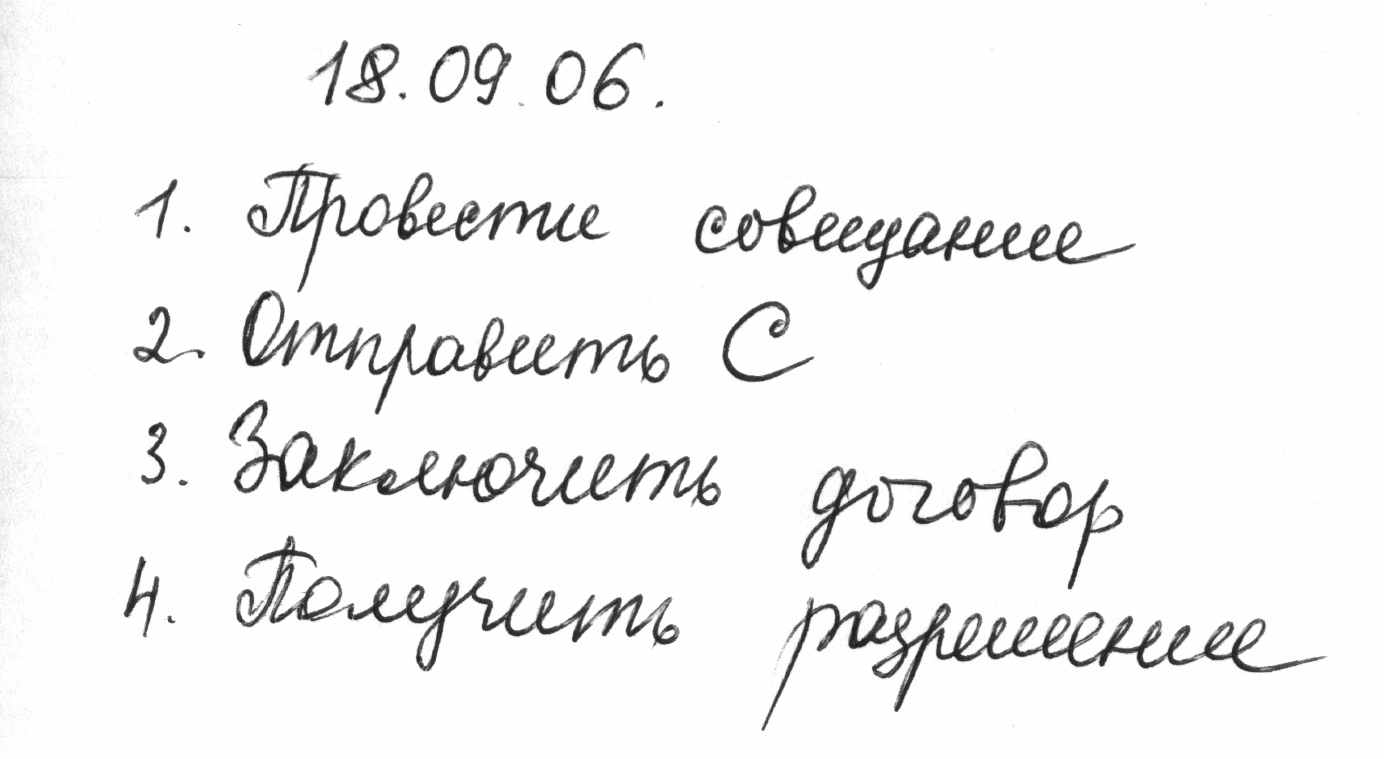 18.09.06.
1. Провести совещание
2. Отправить С
3. Заключить договор
4. Получить разрешение